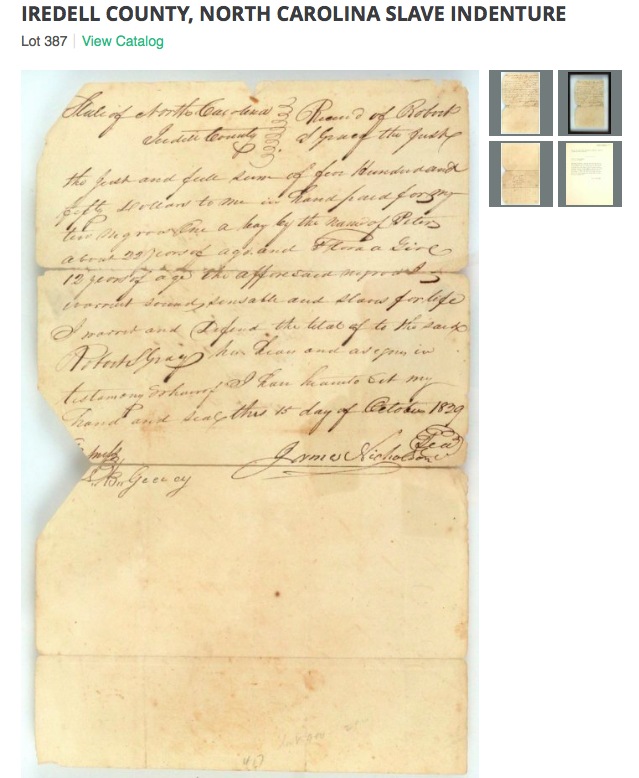 IREDELL COUNTY, NORTH CAROLINA SLAVE INDENTURE
Lot 387 View Catalog
State of North Carolina Received of Robert
Iredell County S Gracy the Just
the Just and full sum of four Hundred and
fifty Dollars to me in hand paid for
two negroes one a boy by the name of Peter
about 22 years of age and Flora a Girl
12 years of age the afforesaid negroes I
warrant sound sensable and slaves for life
I warrent and Defend the of to the said
Robert S Gracy his Heirs and in
testamony I have hereunto set my
hand and seal this 15 day of October 1829
James Nicholson Seal
Gracy